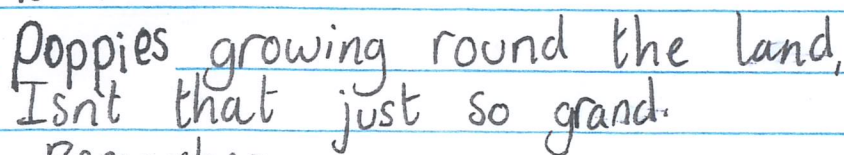 Poppies growing round the land,
Isn't that just so grand.